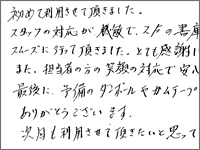 初めて利用させて頂きました。
スタッフの対応が機敏で、スタの書庫
スムーズに行って頂きました。とても感謝
また、担当者の方の笑顔の対応で安
最後に、予備のダンボールやガムテープ
ありがとうございます。
次回も利用させて頂きたいと思って